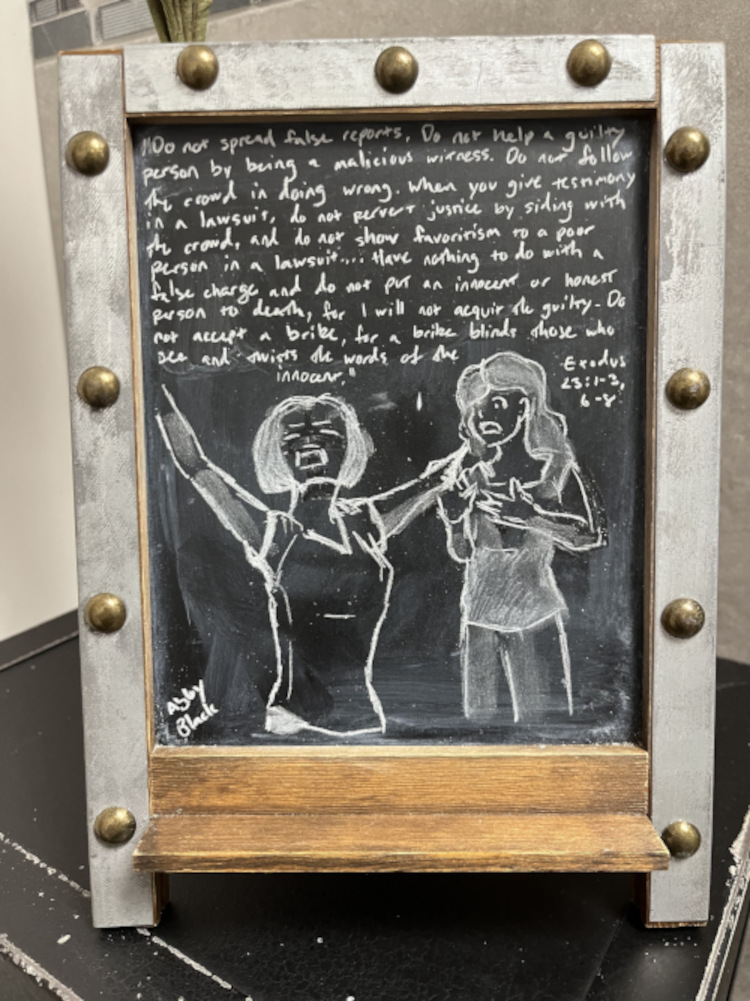 "Do not spread false reports. Do not help a guilty
person by being a malicious witness. Do not follow
the crowd in doing wrong. When you give testimony
in a lawsuit, do not pervert justice by siding with
the crowd, and do not show favoritism to a poor
person in a lawsuit... Have nothing to do with a
false charge and do not put an innocent or honest
person to death, for I will not acquit the guilty. Do
not accept a bribe, for a bribe blinds those who
see and twists the words of the
innocent."
Exodus
23:1-3,
6-8
Abby
Black